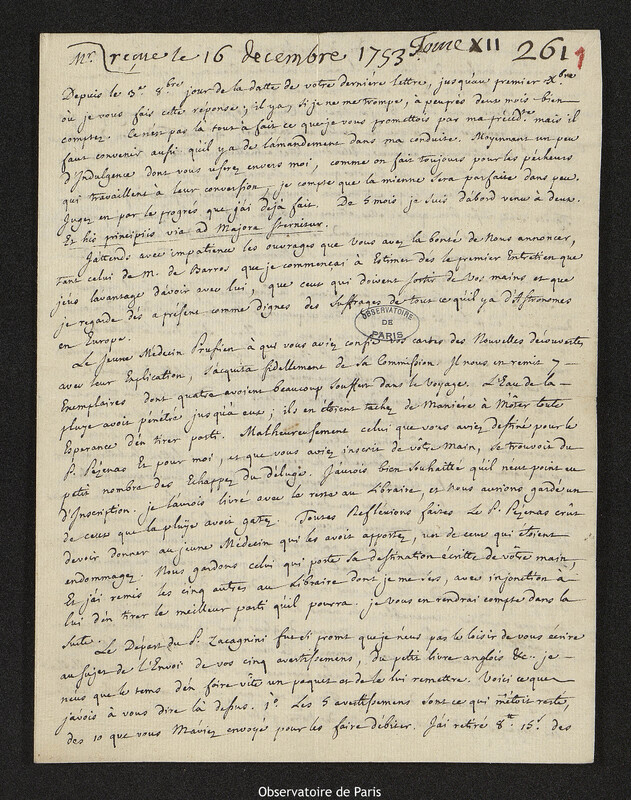 Mr. reçue le 16 decembre 1753 Tome XII 261
Depuis le 3e. 8bre jour de la datte de votre derniére lettre, jusqu'au premier Xbre
où je vous fais cette réponse, il y a, si je ne me trompe, à peu prés deux mois bien
comptez. Ce n'est pas là tout à fait ce que je vous promettois par ma précédte. mais il
faut convenir aussi qu'il y a de l'amandement dans ma conduite. Moyennant un peu
d'Indulgence dont vous userez envers moi, comme on fait toujours pour les pécheurs
qui travaillent à leur conversion, je compte que la mienne sera parfaite dans peu.
Jugez en par le progrés que j'ai dejà fait. De 5 mois je suis d'abord venu à deux.
Et his principiis via ad Majora sternitur.
J'attends avec impatience les ouvrages que vous avez la bonté de Nous annoncer,
tant celui de M. de Barros que je commençai à Estimer dés le premier Entretien que
j'eus l'avantage d'avoir avec lui, que ceux qui doivent sortir de vos mains et que
je regarde dés à présent comme dignes des suffrages de tout ce qu'il y a d'Astronomes
en Europe.
OBSERVATOIRE
DE
PARIS
Le jeune Médecin Prussien à qui vous aviez confié vos cartes des Nouvelles découvertes
avec leur Explication, s'acquita fidellement de sa Commission. Il nous en remit 7
Exemplaires dont quatre avoient beaucoup souffert dans le voyage. L'Eau de la
pluye avoit pénétré jusqu'à eux; ils en étoient tachez de Maniére à M'ôter toute
Esperance d'en tirer parti. Malheureusement celui que vous aviez destiné pour le
P. Pézenas Et pour moi, et que vous aviez inscrit de vôtre main, se trouvoit du
petit nombre des Echappez du déluge. J'aurois bien souhaitté qu'il n'eut point eu
d'Inscription. je l'aurois livré avec le reste au Libraire, et Nous aurions gardé un
de ceux que la pluye avoit gatez. Toutes Reflexions faites le P. Pézenas crût
devoir donner au jeune Médecin qui les avoit apportez, un de ceux qui étoient
endommagez. Nous gardons celui qui porte sa destination écritte de vôtre main,
Et j'ai remis les cinq autres au Libraire dont je me sers, avec injonction à
lui d'en tirer le meilleur parti qu'il pourra. je vous en rendrai compte dans la
suite.
Le Départ du P. Zacagnini fut si promt que je n'eus pas le loisir de vous écrire
au sujet de l'Envoi de vos cinq avertissemens, du petit livre anglois &c. je
n'eus que le tems d'en faire vite un paquet et de le lui remettre. Voici ce que
j'avois à vous dire là dessus. 1°. Les 5 avertissemens sont ce qui m'étoit resté,
des 10 que vous M'aviez envoyé pour les faire débiter. J'ai retiré 8tt. 15s. des
Observatoire de Paris